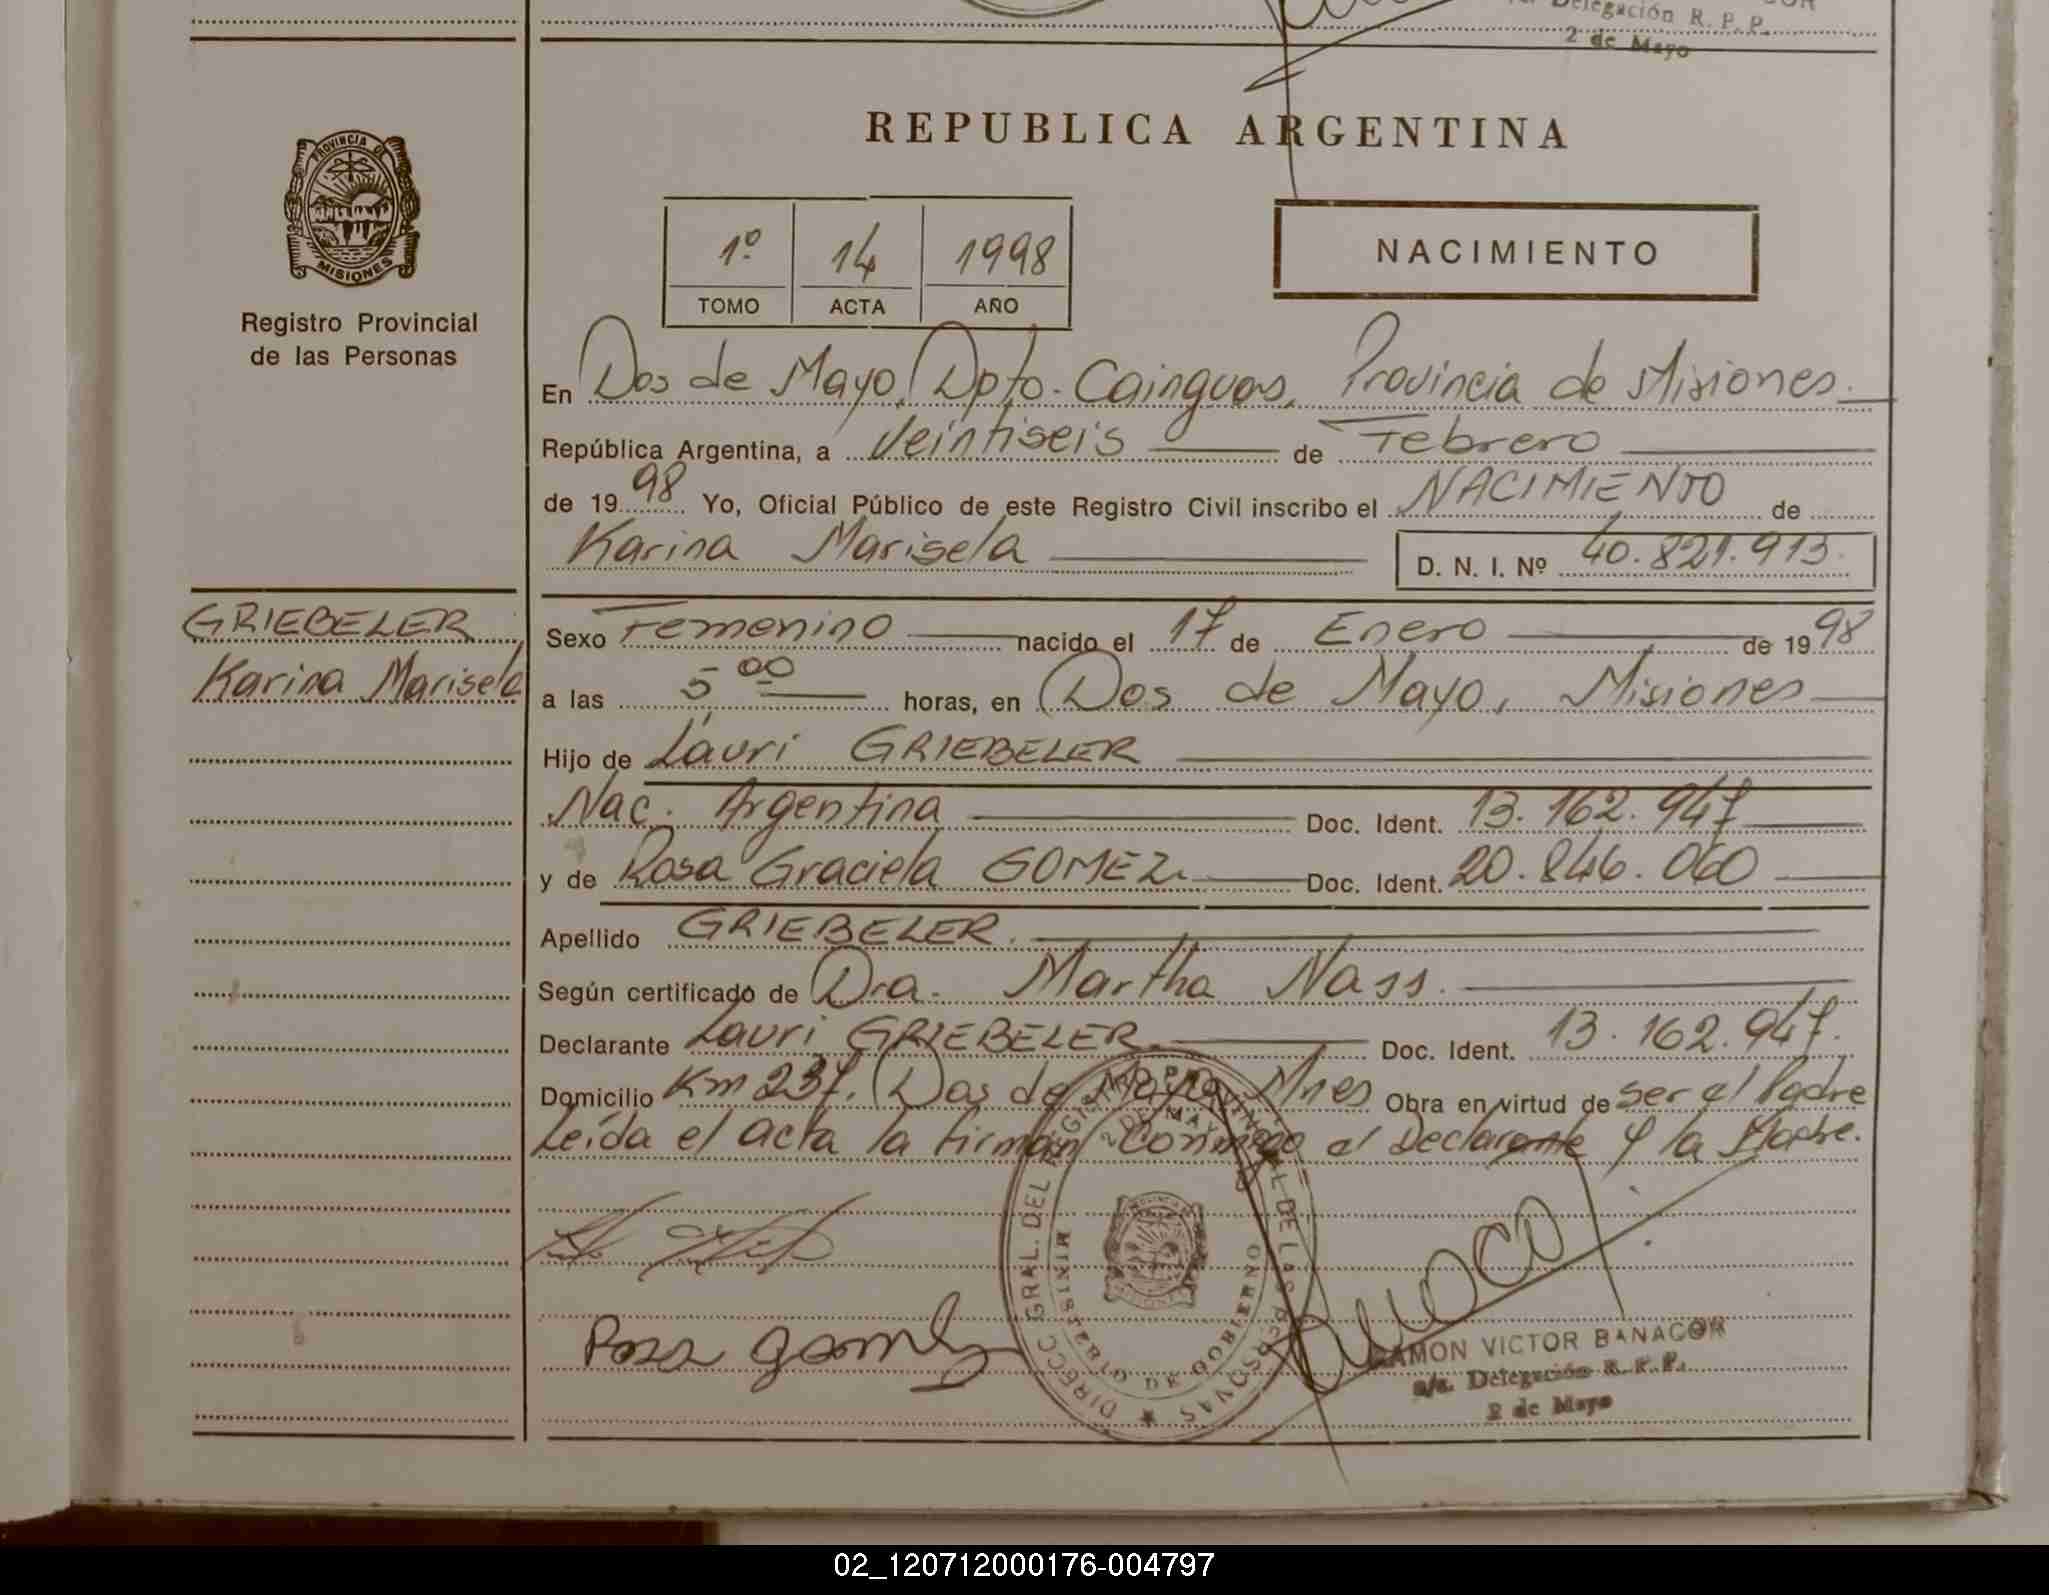 Delegación R. P. P.
2 de Mayo
REPUBLICA ARGENTINA
PROVINCIA DE
MISIONES
Registro Provincial
de las Personas
1º 14 1998
TOMO ACTA AÑO
NACIMIENTO
En Dos de Mayo, Dpto. Cainguas, Provincia de Misiones.
República Argentina, a Veintiseis de Febrero
de 1998 Yo, Oficial Público de este Registro Civil inscribo el NACIMIENTO de
Karina Marisela D. N. I. Nº 40.821.913.
GRIEBELER
Karina Marisela
Sexo Femenino nacido el 17 de Enero de 1998
a las 5,00 horas, en Dos de Mayo, Misiones
Hijo de Lauri GRIEBELER
Nac. Argentina Doc. Ident. 13.162.947
y de Rosa Graciela GOMEZ. Doc. Ident. 20.846.060
Apellido GRIEBELER.
Según certificado de Dra. Martha Nass.
Declarante Lauri GRIEBELER. Doc. Ident. 13.162.947.
Domicilio Km 237. Dos de Mayo, Mnes Obra en virtud de ser el Padre
Leída el acta la firman Conmigo el Declarante y la Madre.
DIRECC GRAL. DEL REGISTRO PROVINCIAL DE LAS PERSONAS
2 DE MAYO
MINISTERIO DE GOBIERNO
Rosa gomez
RAMON VICTOR BANACOR
a/c. Delegación R. P. P.
2 de Mayo
02_120712000176-004797